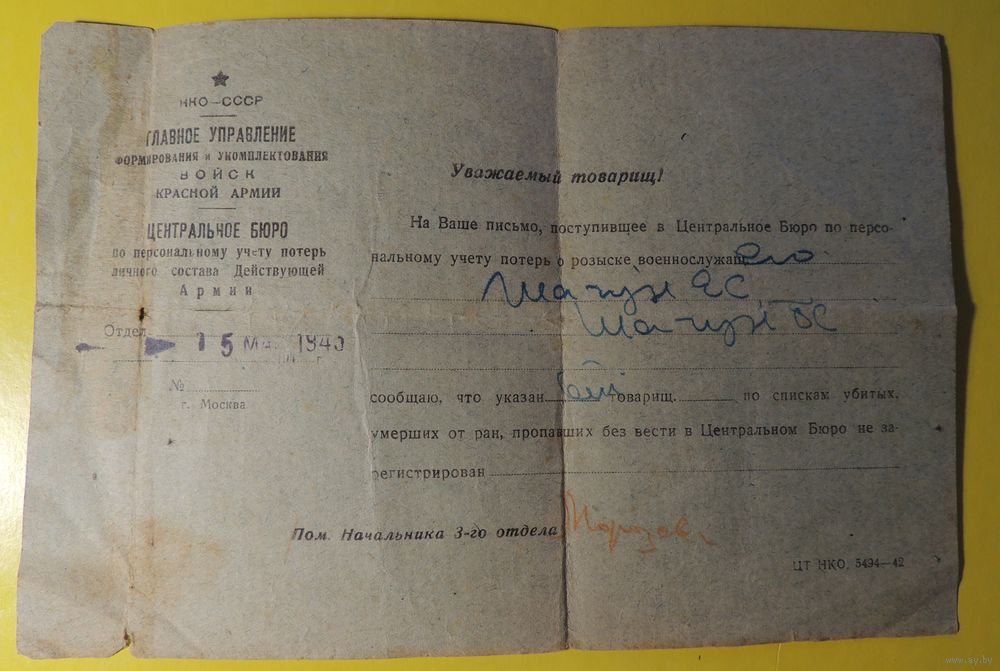 НКО–СССР
ГЛАВНОЕ УПРАВЛЕНИЕ
ФОРМИРОВАНИЯ и УКОМПЛЕКТОВАНИЯ
ВОЙСК
КРАСНОЙ АРМИИ
ЦЕНТРАЛЬНОЕ БЮРО
по персональному учету потерь
личного состава Действующей
Армии
Отдел
15 1943
г.
№
г. Москва
Уважаемый товарищ!
На Ваше письмо, поступившее в Центральное Бюро по персо-
нальному учету потерь о розыске военнослужащ его
сообщаю, что указан товарищ. по спискам убитых,
умерших от ран, пропавших без вести в Центральном Бюро не за-
регистрирован
Пом. Начальника 3-го отдела
ЦТ НКО. 5494—42
www.ay.by